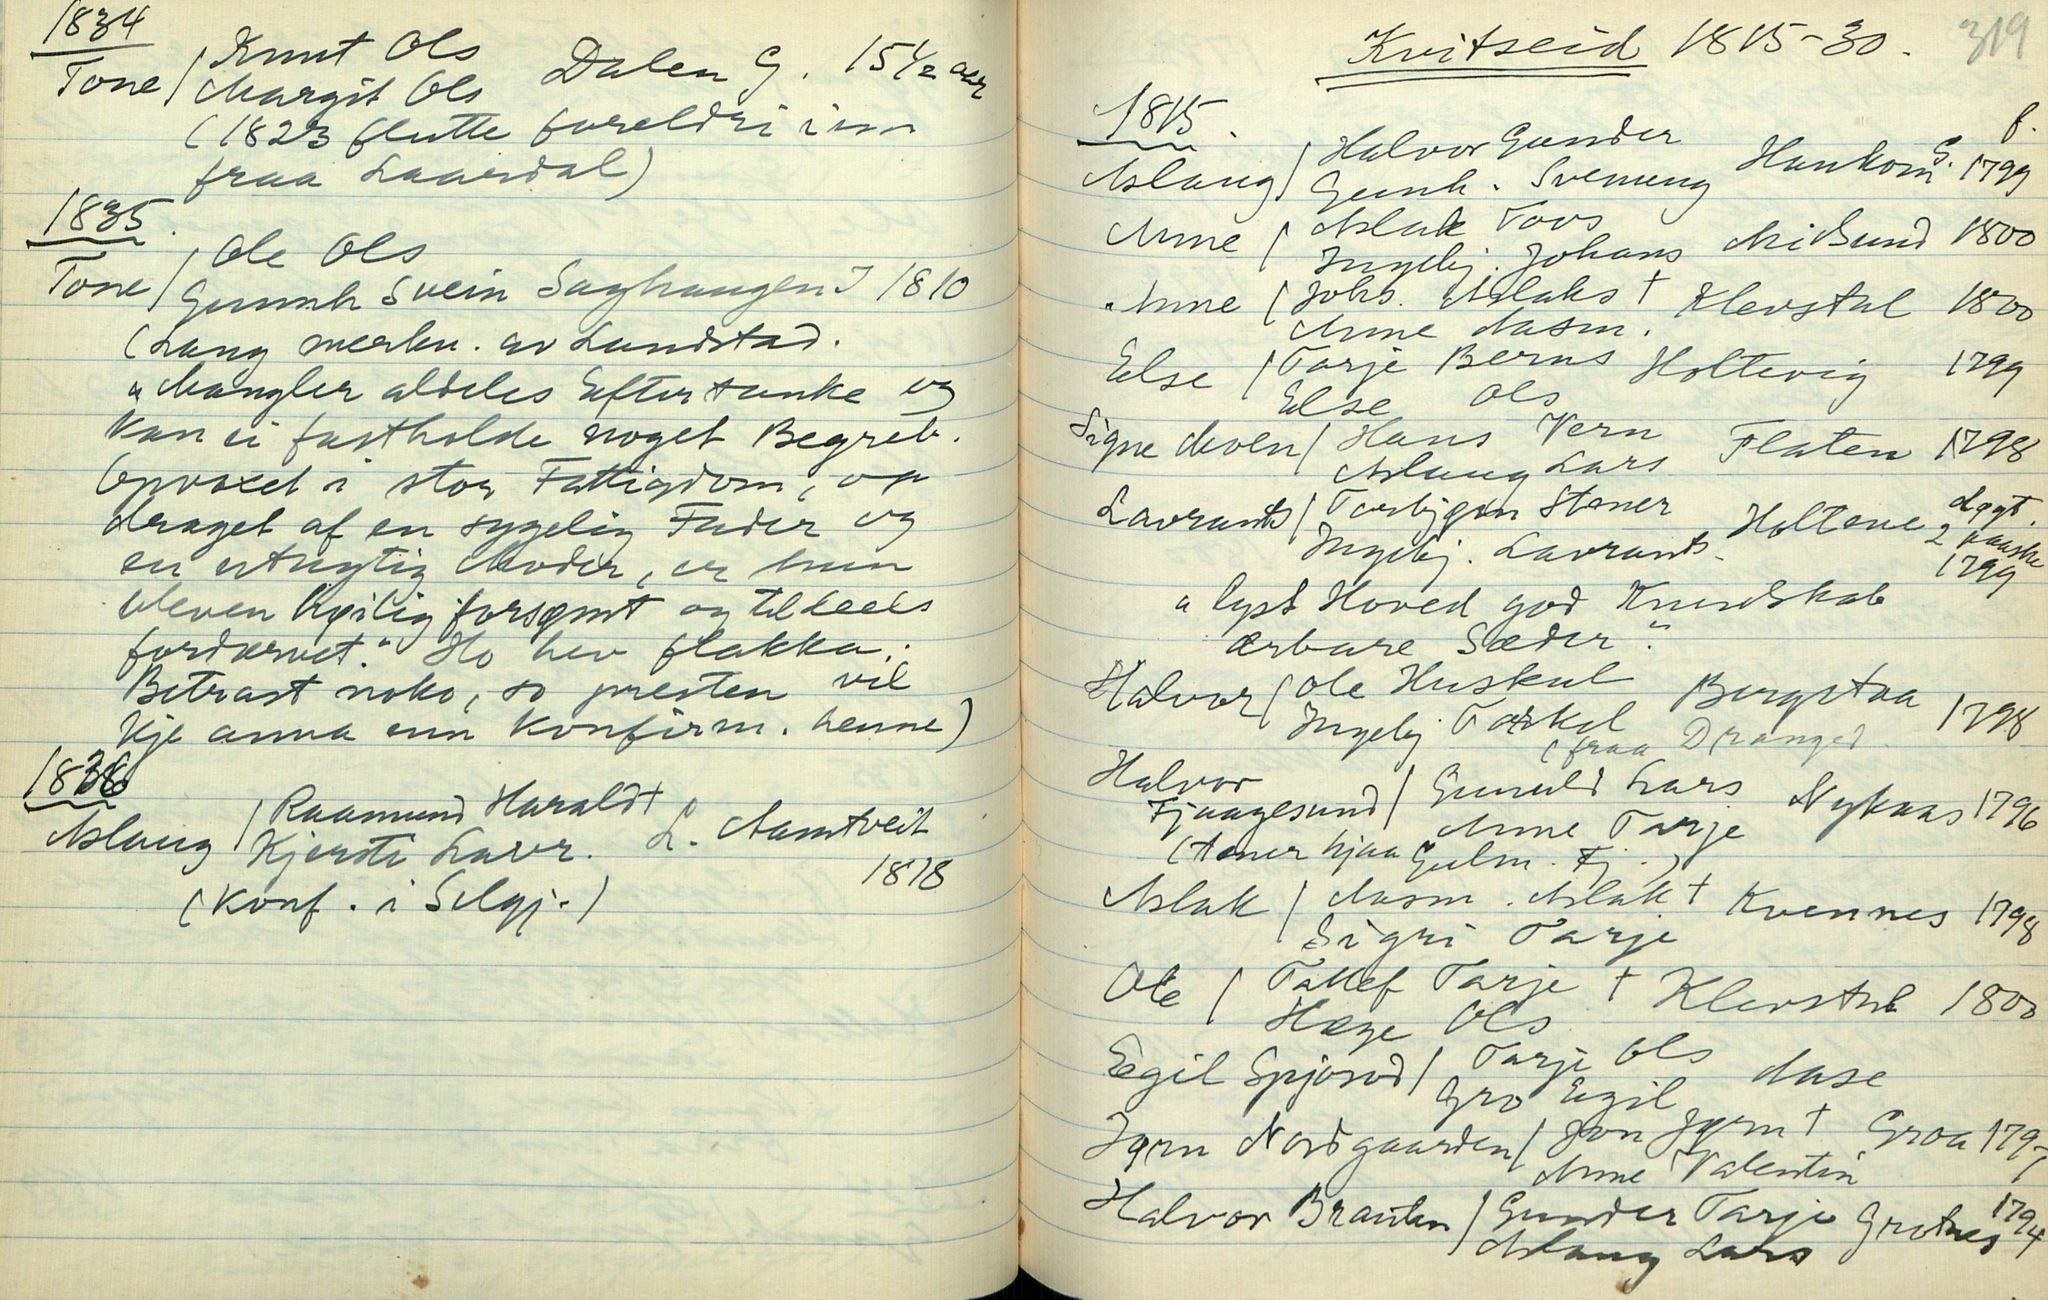 1834
Tone / Knut Ols
Margit Ols Dalen G. 15½ aar
(1823 flutte foreldri inn
fraa Laardal)
1835.
Tone / Ole Ols
Gunnh Svein Saghaugen J 1810
(Lang merkn. av Lundstad.
"Mangler aldeles Eftertanke og
kan ei fastholde noget Begreb.
Opvoxet i stor Fattigdom, op
draget af en sygelig Fader og
en uduglig Moder, er hun
bleven høilig forsømt og tildeels
fordærvet." Ho hev flakka.
Betrast noko, so presten vil
ikje anna enn konfirm. henne)
1836
Aslaug / Raamund Harald †
Kjersti Lavr. L. Aamtveit
1818
(Konf. i Selgj.)
319
Kvitseid 1815-30.
1815.
f.
Aslaug / Halvor Gunder
Gunh. Sveinung Haukom G. 1799
Anne / Aslak Tovs
Ingebj. Johans Midbund 1800
Anne / Johs. Aslaks † Klevstul 1800
Anne Aasm.
Else / Tarje Berns Holtevig 1799
Else Ols
Signe Moen / Hans Vern
Aslaug Lars Flaten 1798
Lavrants / Torbjørn Stener
Ingebj. Lavrants Holtane døpt.
2 paaske
1799
"lyst Hoved god Kundskab
ærbare Sæder".
Halvor / Ole Huskul
Ingebj Torkel Bergstaa 1798
(fraa Drangd.
Halvor
Fjaagesund / Gunuld Lars
Anne Tarje Nykaas 1796
(tener hjaa Gulm. Fj.)
Aslak / Aasm. Aslak † Kvennes 1798
Sigri Tarje
Ole / Tallef Tarje † Klevstul 1800
Hæge Ols
Egil Spjosod / Tarje Ols Aase
Gro Egil
Jørn Nordgaarden / Jon Jørn † Groa 1797
Anne Valentin
Halvor Brauten / Gunder Tarje Grotnes 1794
Aslaug Lars